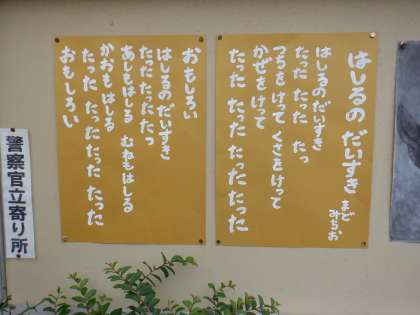 はしるの だいすき
まど
みちお
はしるのだいすき
たった たった たっ
つちをけって くさをけって
かぜをけって
たった たった たった
おもしろい
はしるのだいすき
たった たった たっ
あしもはしる むねもはしる
かおもはしる
たった たったたった たった
おもしろい
警察官立寄り所